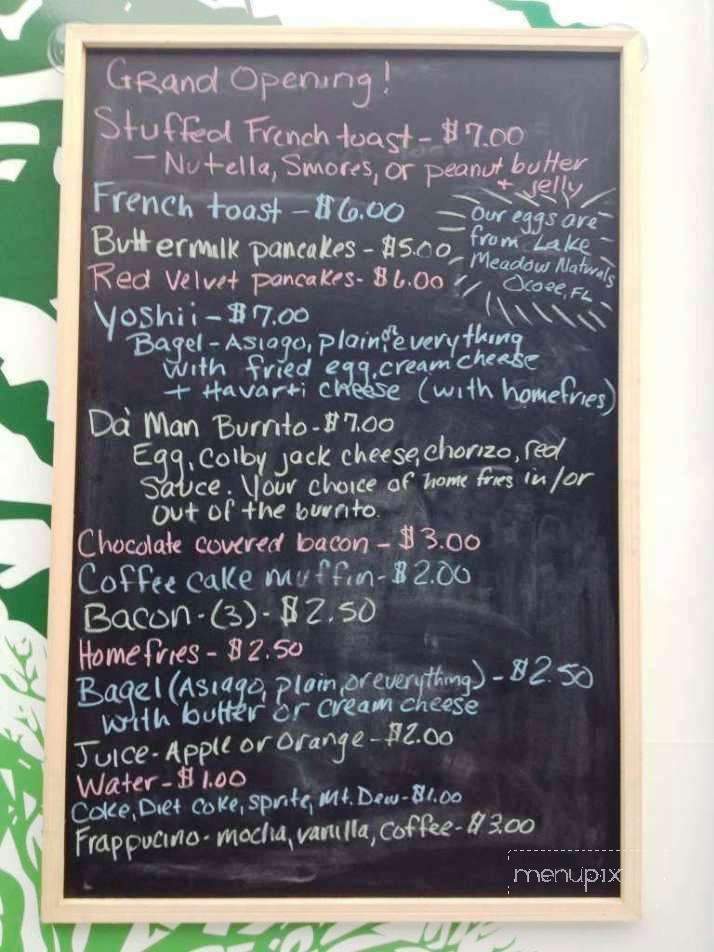 Grand Opening!
Stuffed French toast - $7.00
- Nutella, Smores, or peanut butter
+ jelly
French toast - $6.00
Our eggs are
from Lake
Meadow Naturals
Ocoee, FL
Buttermilk pancakes - $5.00
Red Velvet pancakes - $6.00
Yoshii - $7.00
Bagel - Asiago, plain, or everything
with fried egg, cream cheese
+ Havarti cheese (with homefries)
Da' Man Burrito - $7.00
Egg, Colby jack cheese, chorizo, red
Sauce. Your choice of home fries in/or
out of the burrito.
Chocolate covered bacon - $3.00
Coffee cake muffin - $2.00
Bacon - (3) - $2.50
Homefries - $2.50
Bagel (Asiago, plain, or everything) - $2.50
with butter or cream cheese
Juice - Apple or Orange - $2.00
Water - $1.00
Coke, Diet Coke, Sprite, Mt. Dew - $1.00
Frappucino - mocha, vanilla, coffee - $3.00
menupix